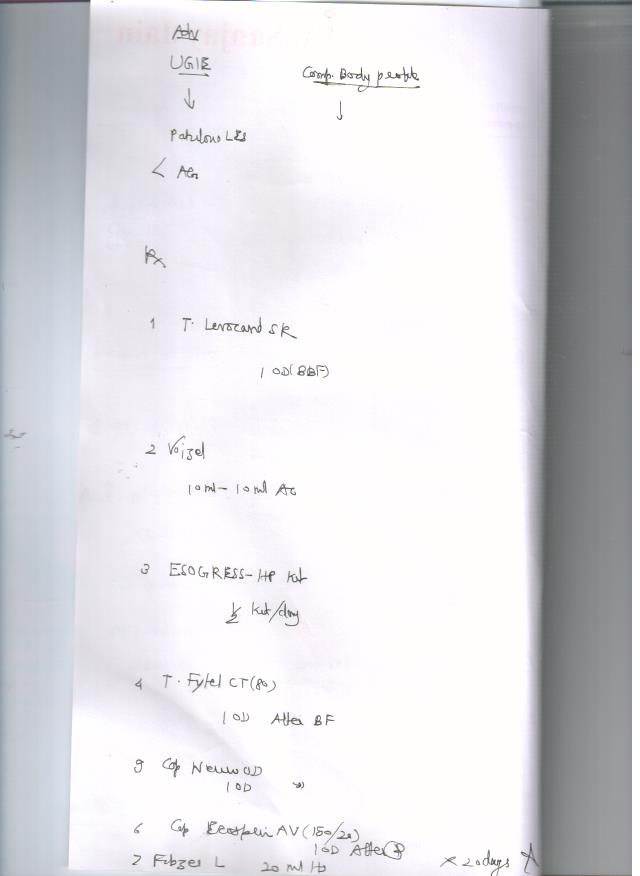 Adv
UGIE
Comp. Body profile
↓ ↓
Patulous LES
< Aer
Rx
1 T. Levocard SR
1 OD (BBF)
2 Voizel
10 ml - 10 ml AC
3 ESOGRESS-HP Kit
Kit/day
4 T. Fytel CT (80)
1 OD After BF
5 Cap Neuro OD
1 OD
6 Cap AV (150/20)
1 OD After
7 L 20 ml Hs
x 20 days